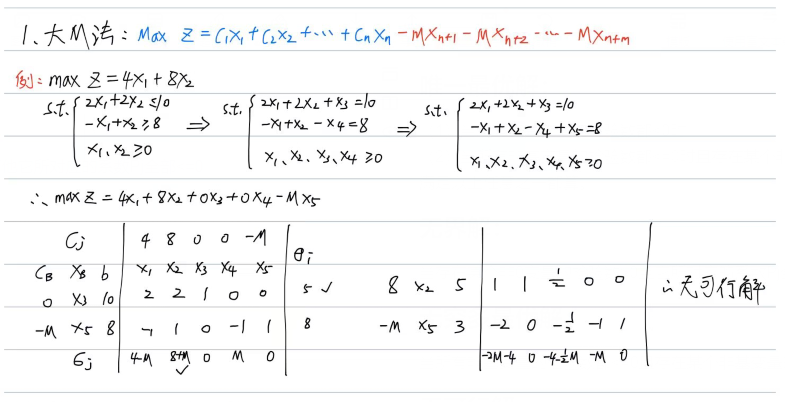 1、大M法: Max Z = C₁X₁ + C₂X₂ + ⋯ + CₙXₙ - MXₙ₊₁ - MXₙ₊₂ - ⋯ - MXₙ₊ₘ
例: max Z = 4X₁ + 8X₂
s.t. { 2X₁+2X₂≤10 ⇒ s.t. { 2X₁+2X₂+X₃=10 ⇒ s.t. { 2X₁+2X₂+X₃=10
-X₁+X₂≥8 -X₁+X₂-X₄=8 -X₁+X₂-X₄+X₅=8
X₁、X₂≥0 X₁、X₂、X₃、X₄≥0 X₁、X₂、X₃、X₄、X₅≥0
∴ max Z = 4X₁ + 8X₂ + 0X₃ + 0X₄ - MX₅
Cj 4 8 0 0 -M θi
CB XB b X₁ X₂ X₃ X₄ X₅
0 X₃ 10 2 2 1 0 0 5 ✓ 8 X₂ 5 1 1 1/2 0 0 ∴无可行解
-M X₅ 8 -1 1 0 -1 1 8 -M X₅ 3 -2 0 -1/2 -1 1
σj 4-M 8+M ✓ 0 M 0 -2M-4 0 -4-1/2M -M 0